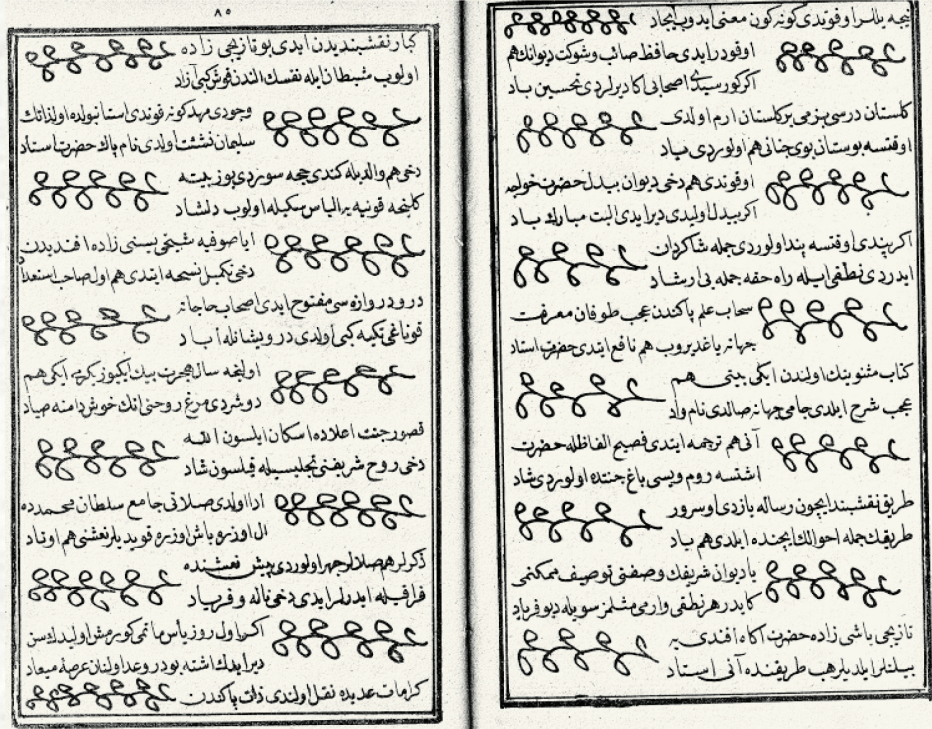 نیجه یللر اوقوندی کونه کون معنی ایدوب ایجاد
اوقودر ایدی حافظ صائب و شوکت دیوانك هم
اکر کورسیدی اصحابی اکا دیرلردی تحسین باد
کلستان درسی بزمی بر کلستان ارم اولدی
اوقتسه بوستان بوی جنانی هم اولوردی یاد
اوقوندی هم دخی دیوان بیدل حضرت خواجه
اکر بیدل اولیدی دیر ایدی البت مبارك باد
اکر پندی اوقتسه پند اولوردی جمله شاکردان
ایدردی نطقی ایله راه حقه جمله یی ارشاد
سحاب علم پاکندن عجب طوفان معرفت
جهانه یاغدیروب هم نافع ایتدی حضرت استاد
کتاب مثنوینك اولندن ایکی بیتی هم
عجب شرح ایلدی جامی جهانه صالدی نام و اد
آنی هم ترجمه ایتدی فصیح الفاظله حضرت
اشتسه روم ویسی باغ جنتده اولوردی شاد
طریق نقشبند ایچون رساله یازدی او سرور
طریقك جمله احوالك ایچنده ایلدی هم یاد
یا دیوان شریفك وصفنی توصیف ممکنمی
کایدر هر نطقی وارمی مثلمز سویله دیو فریاد
نازیجی باشی زاده حضرت آکاه افندی یه
بیلنلر ایلدیلر هب طریقنده آنی استاد
۸۵
کبار نقشبندیدن ایدی بو نازیجی زاده
اولوب شیطان ایله نفسك الندن قوش کبی آزاد
وجودی مهد کونه قوندی استانبولده اول ذاتك
سلیمان نشئت اولدی نام پاك حضرت استاد
دخی هم والدیله کندی حجه سوردی یوز بیته
کلنجه قونیه یه الیاس سکیله اولوب دلشاد
ایا صوفیه شیخی بسنی زاده افندیدن
دخی تکمیل نسخه ایتدی هم اول صاحب استعداد
در و دروازه سی مفتوح ایدی اصحاب حاجاته
قوناغی تکیه کبی اولدی درویشانله آباد
اولنجه سال هجرت بیك ایکیوز یکرمی ایکی هم
دوشردی مرغ روحنی انك خوش دامنه صیاد
قصور جنت اعلاده اسکان ایلسون الله
دخی روح شریفنی تجلیسیله قیلسون شاد
ادا اولدی صلاتی جامع سلطان محمدده
ال اوزره باش اوزره قویدیلر نعشنی هم اوتاد
ذکرلر هم صلالر جهر اولوردی پیش نعشنده
فراقیله ایدرلر ایدی دخی ناله و فریاد
اکر اول روز یاس ماتمی کورمش اولیدك سن
دیر ایدك اشته بودر وعد اولنان عرصۀ میعاد
کرامات عدیده نقل اولندی ذات پاکندن